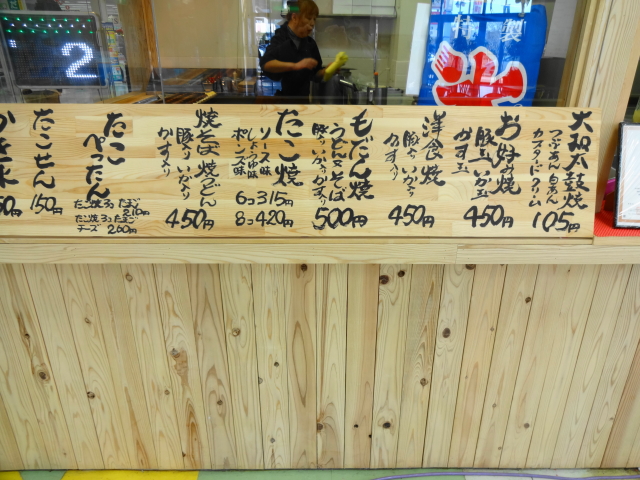 2
特製
氷
大和太鼓焼
つぶあん 白あん
カスタードクリーム
105円
お好み焼
豚玉 いか玉
かす玉
450円
洋食焼
豚入り いか入り
かす入り
450円
もだん焼
うどん・そば
豚入り・いか入り・かす入り
500円
たこ焼
ソース味
しょうゆ味
ポン酢味
6コ 315円
8コ 420円
焼そば 焼うどん
豚入り いか入り
かす入り
450円
たこ
ぺったん
たこ焼 3コ たまご
210円
たこ焼 3コ たまご
チーズ 260円
たこせん
150円
かき氷
50円